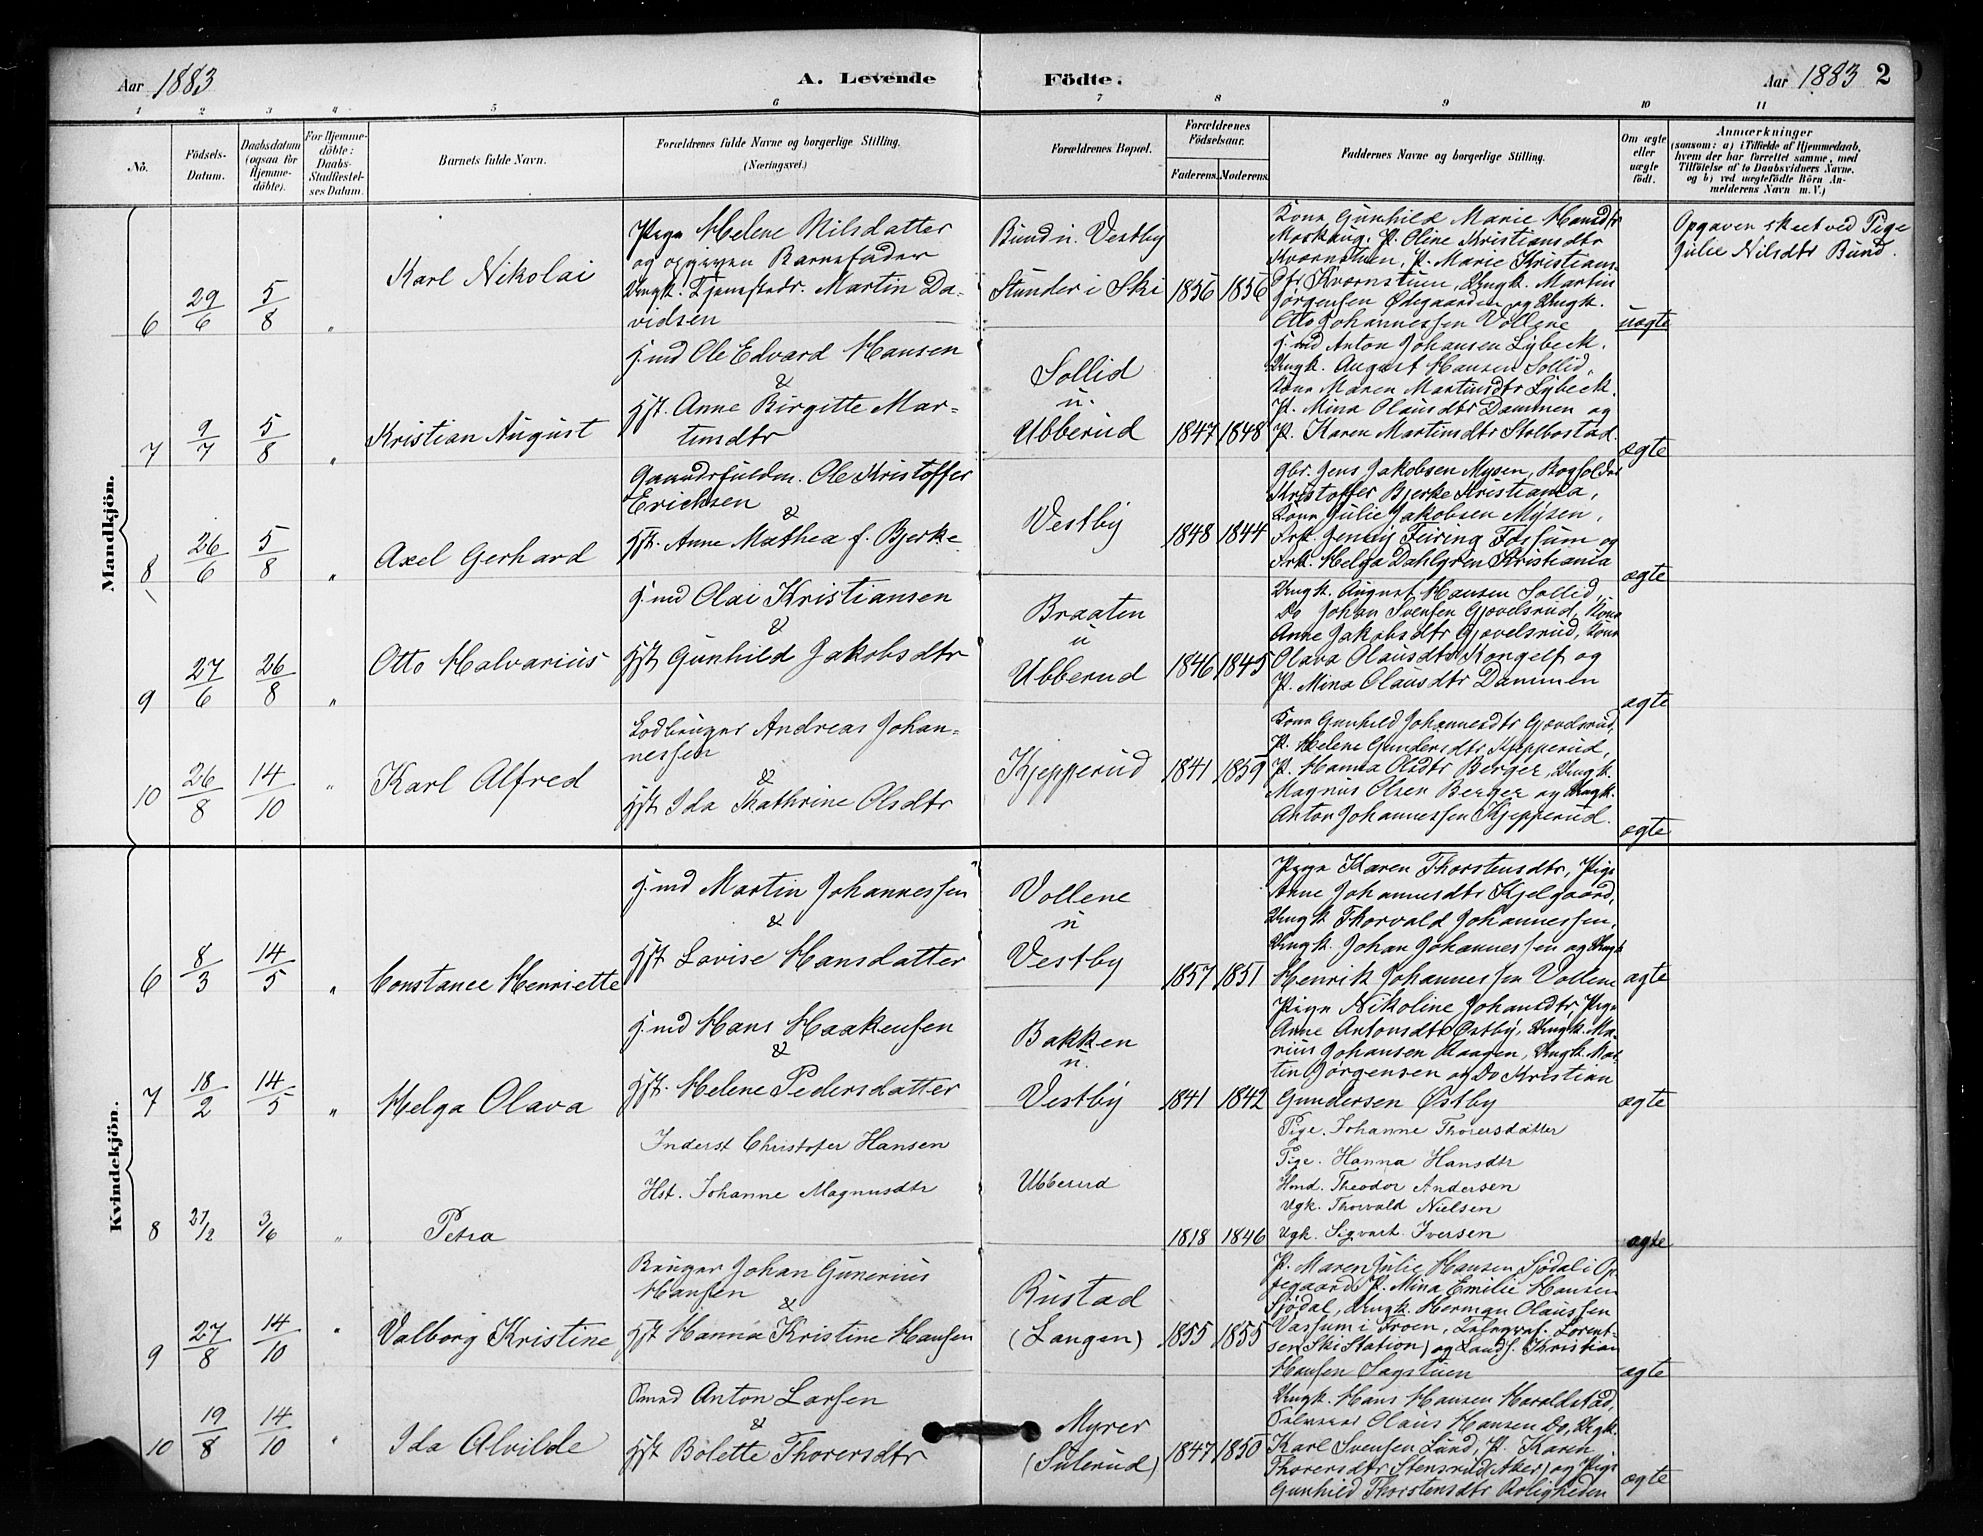 Aar 1883
A. Levende Födte.
Aar 1883 2
1 2 3 4 5 6 7 8 9 10 11
No.
Födsels-Datum.
Daabsdatum (ogsaa for Hjemme-döbte).
For Hjemme-döbte: Daabs-Stadfæstel-ses Datum.
Barnets fulde Navn.
Forældrenes fulde Navne og borgerlige Stilling. (Næringsvei.)
Forældrenes Bopæl.
Forældrenes Födselsaar.
Faderens. Moderens.
Faddernes Navne og borgerlige Stilling.
Om ægte eller uægte født.
Anmærkninger
(saasom: a) i Tilfælde af Hjemmedaab,
hvem der har forrettet samme, med
Tilföielse af to Daabsvidners Navne,
og b) ved uægtefödte Börn An-
melderens Navn m. V.)
Mandkjön.
6 29/6 5/8 "
Karl Nikolai
Pige Helene Nilsdatter
og opgiven Barnefader
Ungk. Tjenestedr. Martin Da-
vidsen
Bund u. Vestby
Stunder i Ski
1856 1856
Kone Gunhild Marie Hansdtr
Moskaug, P. Oline Kristiansdtr
Kvernstuen, P. Marie Kristians-
dtr Kvernstuen, Ungk. Martin
Jörgensen Ødegaarden og Ungk.
Otto Johannessen Vollene
uægte
Opgaven skeet ved Pige
Julie Nilsdtr Bund.
7 9/7 5/8 "
Kristian August
H.md Ole Edvard Hansen
&
Hst. Anne Birgitte Mar-
tinsdtr
Sollid
u.
Ubberud
1847 1848
H.md Anton Johansen Lybeck.
Ungk. August Hansen Sollid,
Kone Maren Martinsdtr Lybeck.
P. Mina Olausdtr Dammen og
P. Karen Martinsdtr Stolbostad.
ægte
8 26/6 5/8 "
Axel Gerhard
Gaardsfuldm. Ole Kristoffer
Ericksen
&
Hst. Anne Mathea f. Bjerke
Vestby
1848 1844
Gbr. Jens Jakobsen Mysen, Bogholder
Kristoffer Bjerke Kristiania,
Kone Julie Jakobsen Mysen,
Frk. Jenny Feiring Fossum og
Frk. Helga Dahlgren Kristiania
ægte
9 27/6 26/8 "
Otto Halvarius
H.md Olai Kristiansen
&
Hst Gunhild Jakobsdtr
Braaten
u
Ubberud
1846 1845
Ungk. August Hansen Sollid,
Do Johan Svensen Gjevelsrud, Kone
Anne Jakobsdtr Gjevelsrud, Kone
Olava Olausdtr Kongelf og
P. Mina Olausdtr Dammen
ægte
10 26/8 14/10 "
Karl Alfred
Lodbruger Andreas Johan-
nessen
&
Hst Ida Kathrine Olsdtr
Kjepperud
1841 1859
Kone Gunhild Johannesdtr Gjevelsrud,
P. Helene Gundersdtr Kjepperud,
P. Hanna Olsdtr Berger, Ungk.
Magnus Olsen Berger og Ungk.
Anton Johannessen Kjepperud.
ægte
Kvindekjön.
6 8/3 14/5 "
Constance Henriette
H.md Martin Johannessen
&
Hst Lovise Hansdatter
Vollene
u
Vestby
1857 1851
Pige Karen Thorstensdtr, Pige
Anne Johannesdtr Kjelgaard,
Ungk Thorvald Johannessen,
Ungk. Johan Johannessen og Ungk
Henrik Johannessen Vollene
ægte
7 18/2 14/5 "
Helga Olava
H.md Hans Haakensen
&
Hst. Helene Pedersdatter
Bakken
u.
Vestby
1841 1842
Pige Nikoline Johansdtr, Pige
Anne Antonsdtr Østby, Ungk. Ma-
rius Johansen Haagen, Ungk. Mar-
tin Jörgensen og Do Kristian
Gundersen Østby
ægte
8 27/12 3/6 "
Petra
Inderst Christofer Hansen
Hst. Johanne Magnusdtr
Ubberud
1818 1846
Pige. Johanne Thorersdatter
Pige. Hanna Hansdtr
Hmd. Theodor Andersen
Ugk. Thorvald Nielsen
Ugk. Sigvart Iversen
ægte
9 27/8 14/10 "
Valborg Kristine
Bruger Johan Gunerius
Hansen
&
Hst Hanna Kristine Hansen
Rustad
(Langen)
1855 1855
P. Maren Julie Hansen Sjödal i Op-
pegaard, P. Mina Emilie Hansen
Sjödal, Ungk. Herman Olaussen
Vassum i Froen, Telegraf. Lorent-
sen (Ski Station) og Landh. Kristian
Hansen Sagstuen
ægte
10 19/8 14/10 "
Ida Alvilde
Smed Anton Larsen
&
Hst Bolette Thorersdtr
Myrer
(Sulerud)
1847 1850
Ungk. Hans Hansen Haraldstad,
Olaus Hansen Do, Ungk.
Karl Svensen Lund, P. Karen
Thorersdtr Stensrud (Aker) og Pige
Gunhild Thorstensdtr Roligheden
ægte